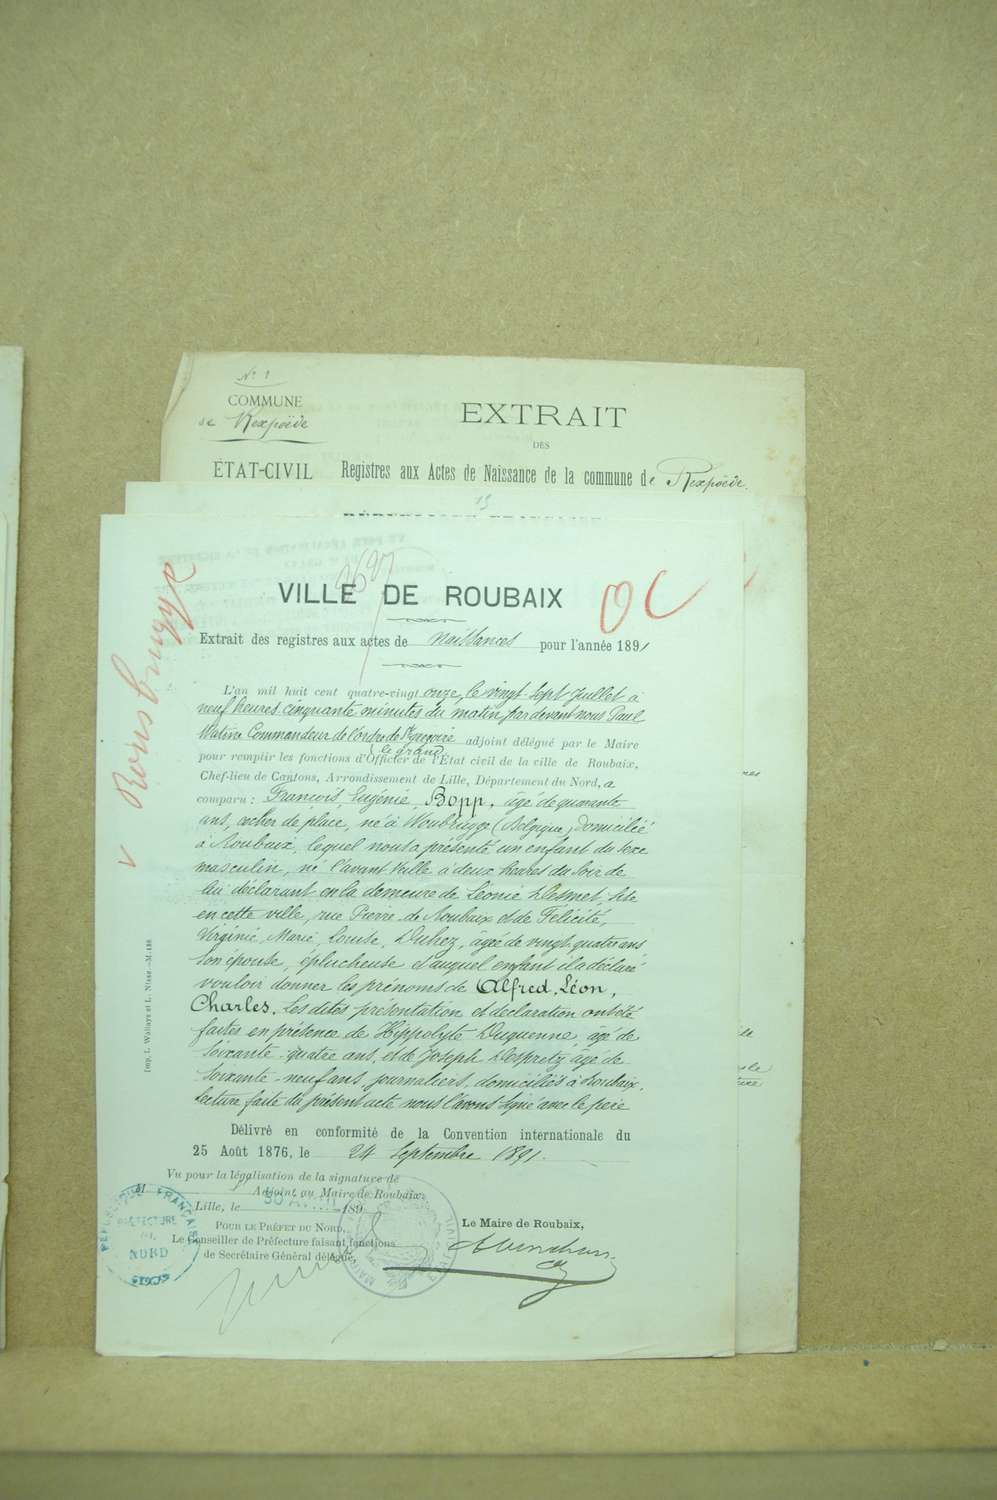 N° 1
COMMUNE
de Rexpoëde
EXTRAIT
DES
ÉTAT-CIVIL
Registres aux Actes de Naissance de la commune de Rexpoëde.
13
VILLE DE ROUBAIX
OC
v Rousbrugge
Extrait des registres aux actes de Naissances pour l'année 1891
L'an mil huit cent quatre-vingt onze, le vingt-sept Juillet à
neuf heures cinquante minutes du matin, par devant nous Paul
Watine Commandeur de l'ordre de St Grégoire adjoint délégué par le Maire
le grand
pour remplir les fonctions d'Officier de l'État civil de la ville de Roubaix,
Chef-lieu de Cantons, Arrondissement de Lille, Département du Nord, a
comparu : François, Eugénie, Bopp, âgé de quarante
ans, cocher de place, né à Woubrugge (Belgique) domicilié
à Roubaix, lequel nous a présenté un enfant du sexe
masculin, né l'avant veille à deux heures du soir de
lui déclarant en la demeure de Léonie Desmet, sise
en cette ville, rue Pierre de Roubaix et de Félicité,
Virginie, Marie, Louise, Duhez, âgée de vingt quatre ans
son épouse, éplucheuse, auquel enfant il a déclaré
vouloir donner les prénoms de Alfred, Léon,
Charles. Les dites présentation et déclaration ont été
faites en présence de Hippolyte Duquenne, âgé de
soixante-quatre ans, et de Joseph Despretz âgé de
soixante-neuf ans, journaliers, domiciliés à Roubaix,
Lecture faite du présent acte nous l'avons signé avec le père
Délivré en conformité de la Convention internationale du
25 Août 1876, le 24 Septembre 1891.
Vu pour la légalisation de la signature de
M
Adjoint au Maire de Roubaix
Lille, le 189
POUR LE PRÉFET DU NORD,
Le Conseiller de Préfecture faisant fonctions
de Secrétaire Général délégué,
Le Maire de Roubaix,
RÉPUBLIQUE FRANÇAISE
PRÉFECTURE
DU
NORD
Imp. L. Wallays et L. Nisse.—M.186